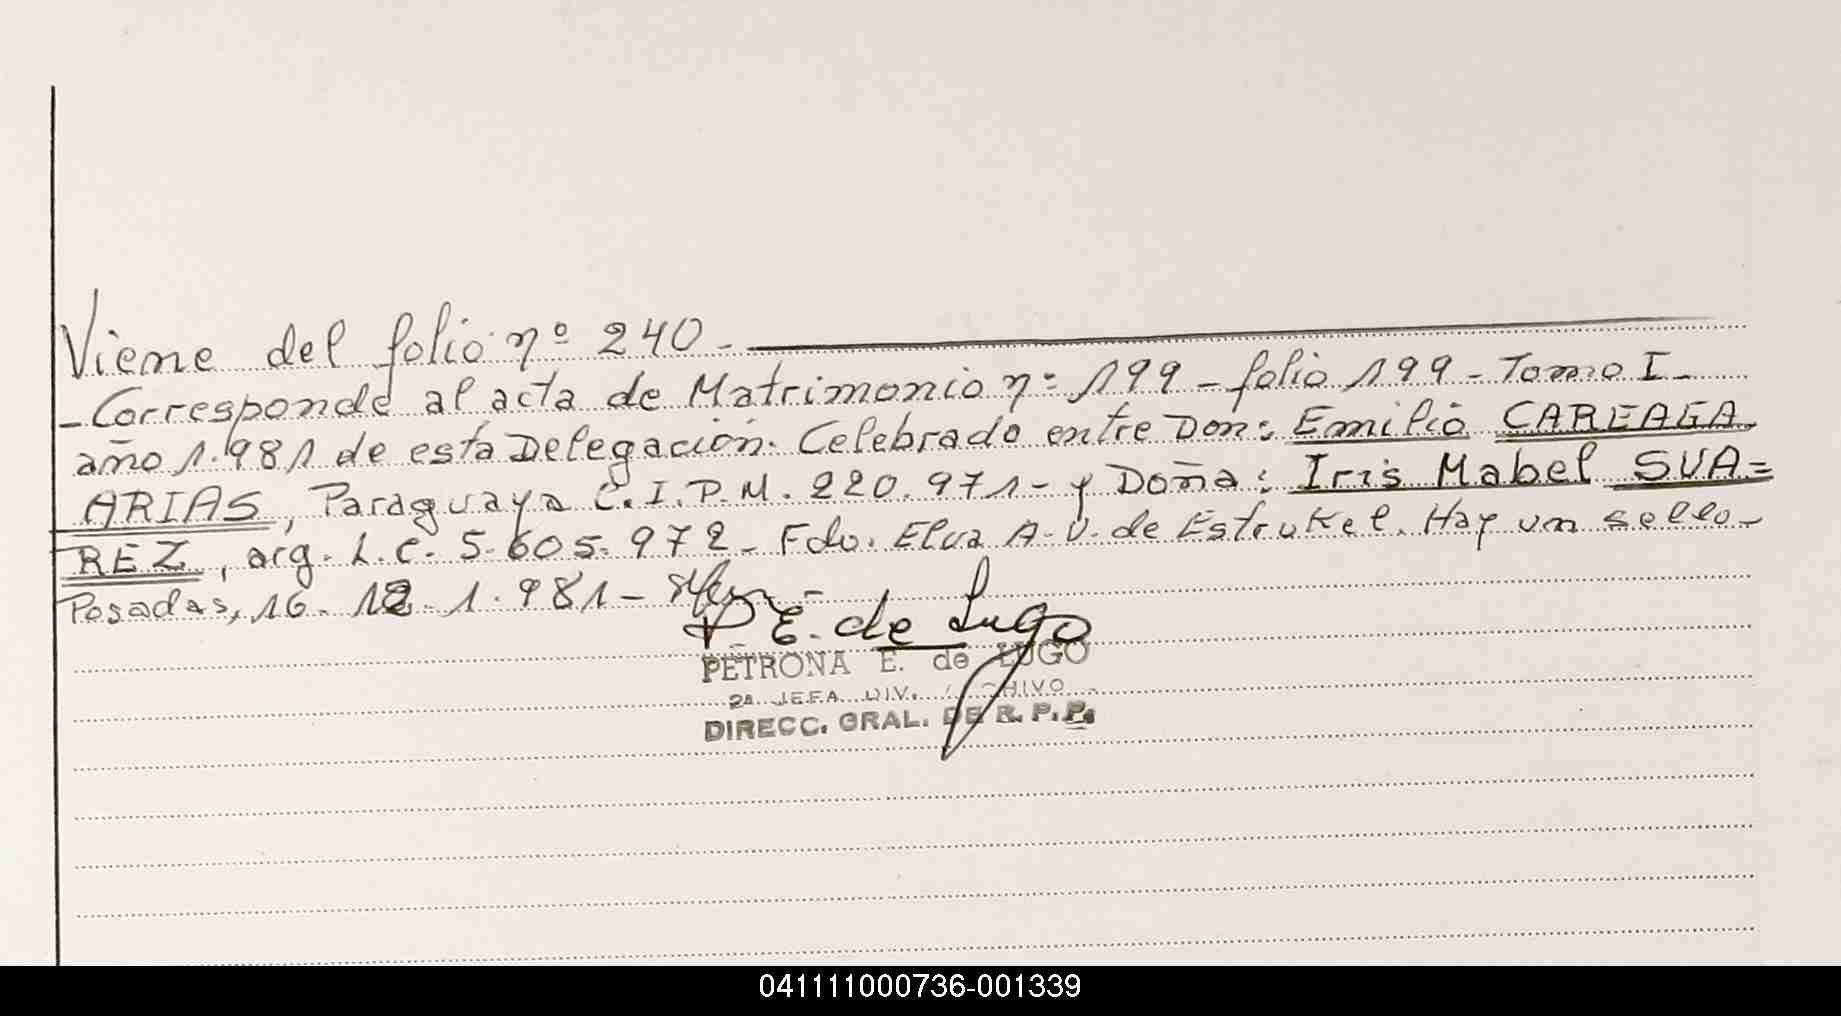 Viene del folio nº 240.-
- Corresponde al acta de Matrimonio nº 199 - folio 199 - Tomo I -
año 1.981 de esta Delegación. Celebrado entre Don: Emilio CAREAGA
ARIAS, Paraguaya C.I.P.M. 220.971 - y Doña: Iris Mabel SUA=
REZ, arg. L.C. 5.605.972 - Fdo. Elva A. V. de Estrukel. Hay un sello -
Posadas, 16. 12. 1.981 -
P. E. de Lugo
PETRONA E. de LUGO
2ª JEFA DIV. ARCHIVO
DIRECC. GRAL. DE R. P. P.
041111000736-001339